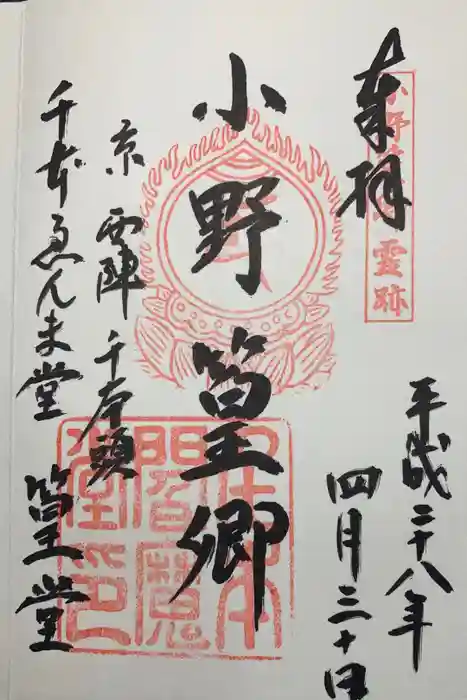 奉拝
平成二十八年
四月三十日
小野篁卿
京 雲陣 千本頭
千本ゑんま堂
篁堂
霊跡